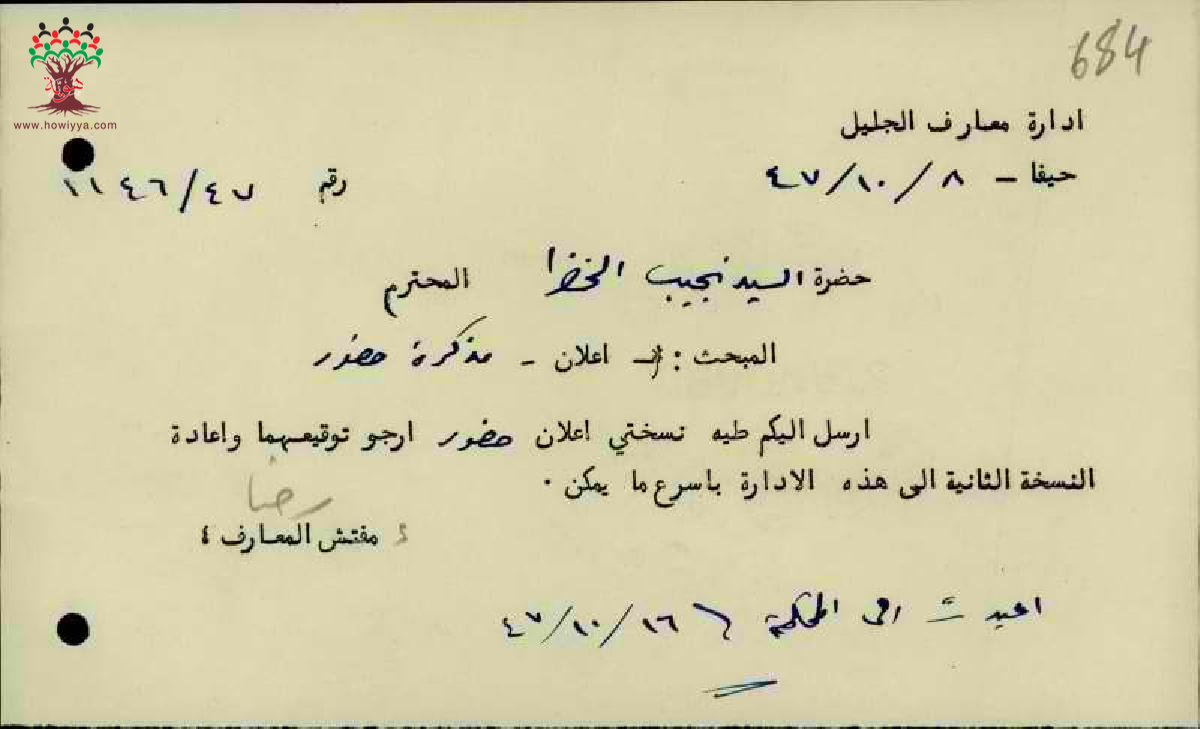 684
هوية
www.howiyya.com
ادارة معارف الجليل
حيفا - ٨/١٠/٤٧
رقم ١١٤٦/٤٧
حضرة السيد نجيب الخضرا المحترم
المبحث : اعلان - مذكرة حضور
ارسل اليكم طيه نسختي اعلان حضور ارجو توقيعهما واعادة
النسخة الثانية الى هذه الادارة باسرع ما يمكن .
مفتش المعارف ،
اعيدت الى المحكمة ١٦/١٠/٤٧